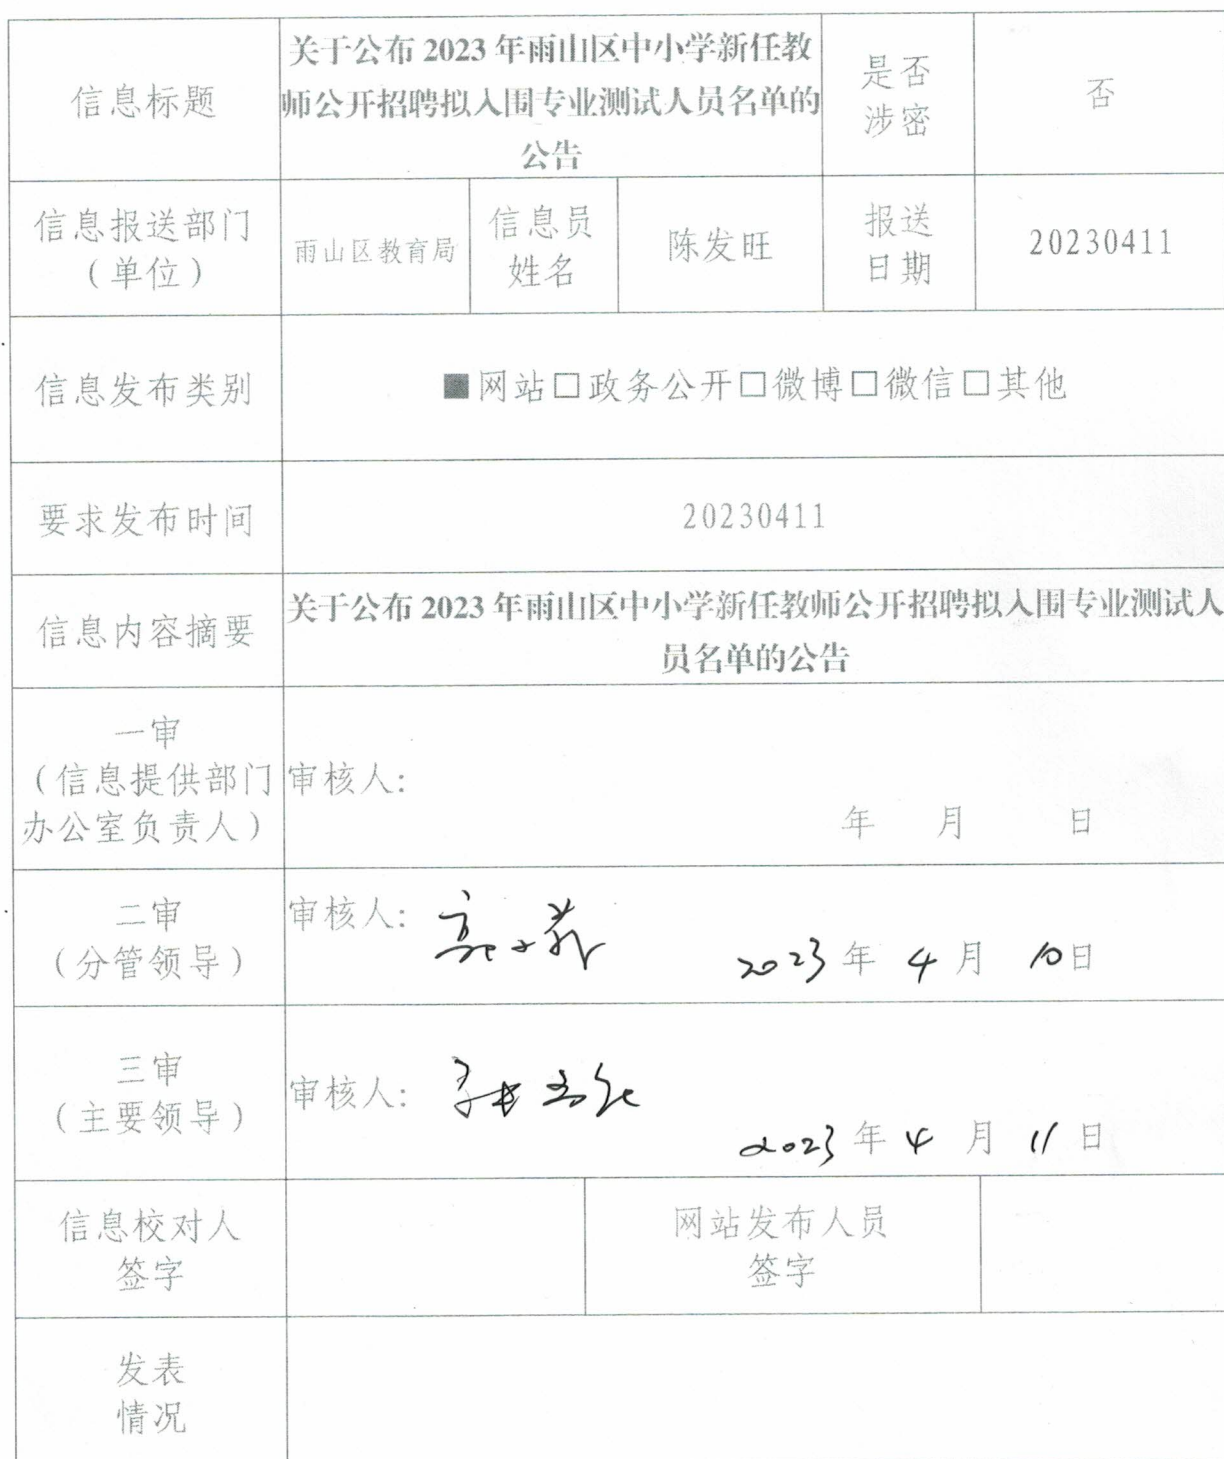 信息标题
关于公布 2023 年雨山区中小学新任教
师公开招聘拟入围专业测试人员名单的
公告
是否
涉密
否
信息报送部门
（单位）
雨山区教育局
信息员
姓名
陈发旺
报送
日期
20230411
信息发布类别
■网站□政务公开□微博□微信□其他
要求发布时间
20230411
信息内容摘要
关于公布 2023 年雨山区中小学新任教师公开招聘拟入围专业测试人
员名单的公告
一审
（信息提供部门
办公室负责人）
审核人:
年 月 日
二审
（分管领导）
审核人:
2023 年 4 月 10日
三审
（主要领导）
审核人:
2023 年 4 月 11 日
信息校对人
签字
网站发布人员
签字
发表
情况